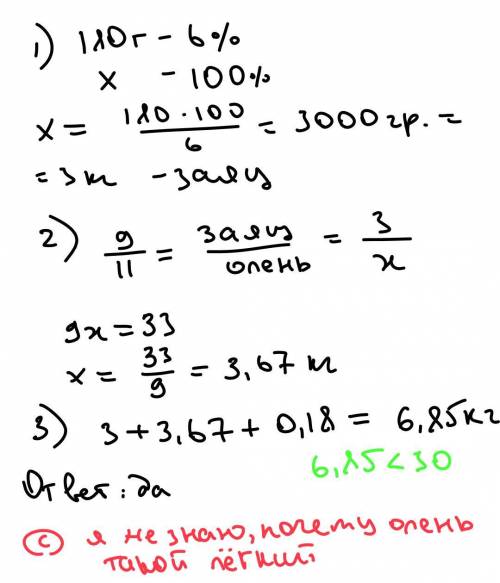 1) 180г - 6%
x - 100%
x = 180 · 100 / 6 = 3000гр. =
= 3кг - заяц
2) 9/11 = заяц/олень = 3/x
9x = 33
x = 33/9 = 3,67 кг
3) 3 + 3,67 + 0,18 = 6,85кг
6,85 < 30
Ответ: да
(с) я не знаю, почему олень
такой лёгкий